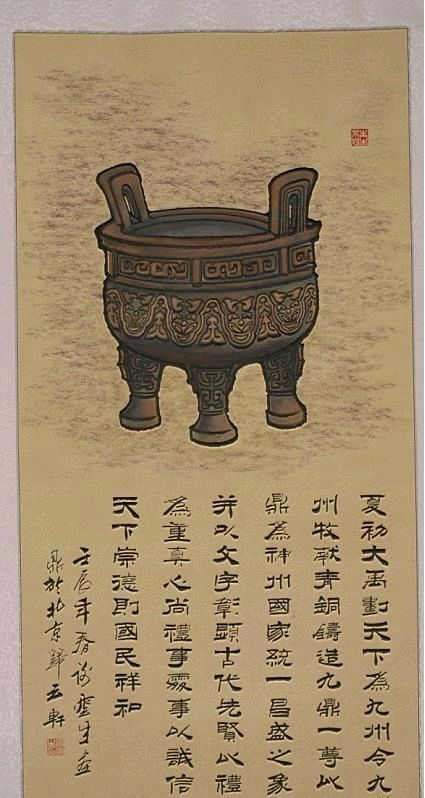 夏初大禹劃天下為九州令九
州牧獻青銅鑄造九鼎一尊此
鼎為神州國家統一昌盛之象
并以文字彰顯古代先賢以禮
為重真心尚禮事事以誠信
天下崇德則國民祥和
壬辰年春雲生
鼎於北京歸云軒